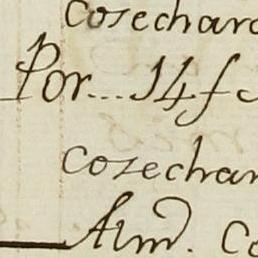 Cosechar
Por... 14 f
Cosechar
Alm̃. Co